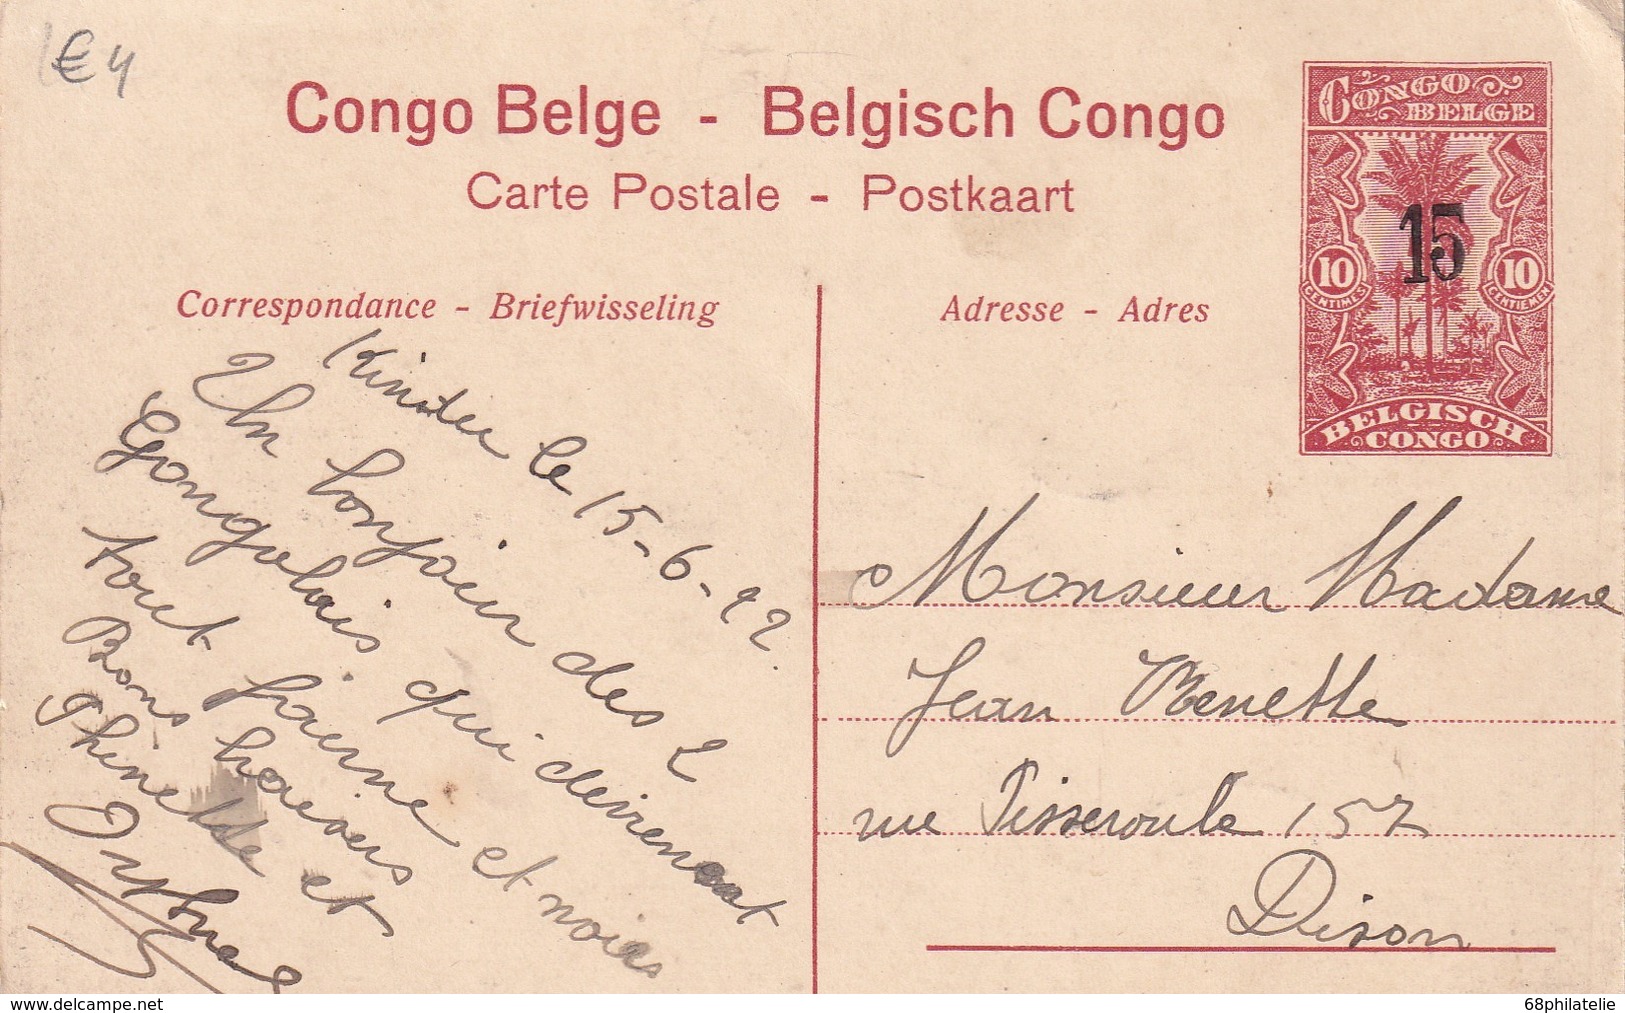 € 4
Congo Belge - Belgisch Congo
Carte Postale - Postkaart
CONGO BELGE
15
10 10
CENTIMES CENTIEMEN
BELGISCH CONGO
Correspondance - Briefwisseling
Adresse - Adres
le 15-6-22.
Un bonjour des 2
Gongolais qui devienent
tout jaunne et noirs
Bons baisers
Phinette et
Monsieur Madame
Jean Renette
rue Pisseroule 157
Dison
www.delcampe.net
68philatelie